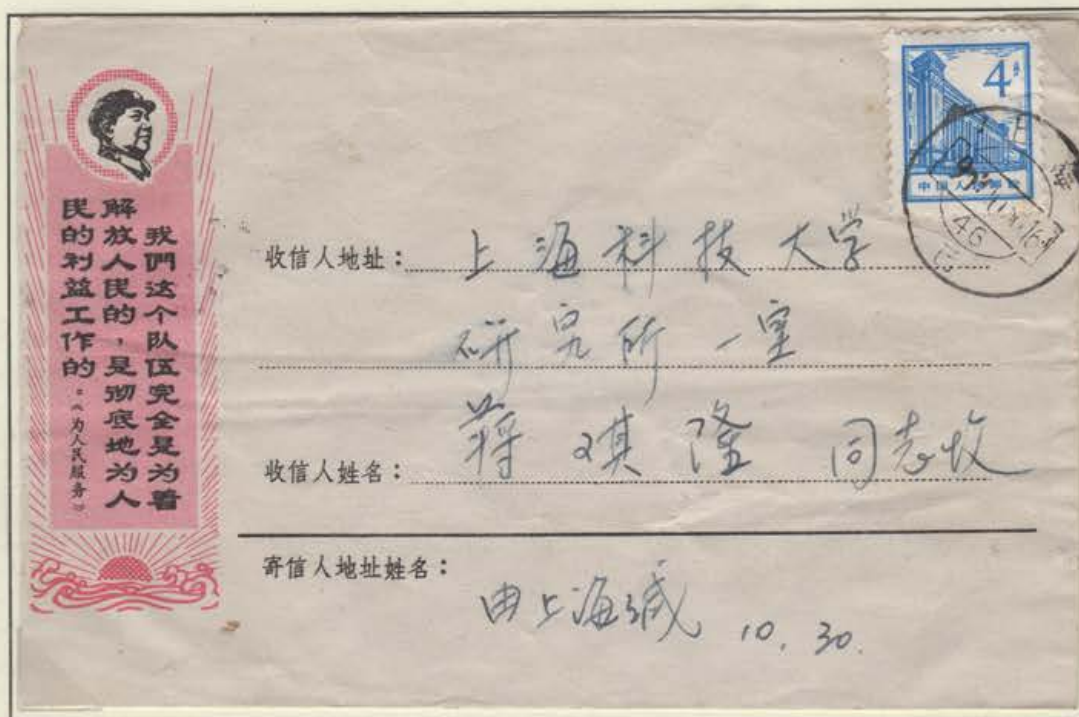 我們这个队伍完全是为着
解放人民的，是彻底地为人
民的利益工作的。《为人民服务》
4分
中国人民邮政
上海
46
收信人地址：上海科技大学
研究所一室
收信人姓名：蒋琪隆 同志收
寄信人地址姓名：
由上海缄 10.30.